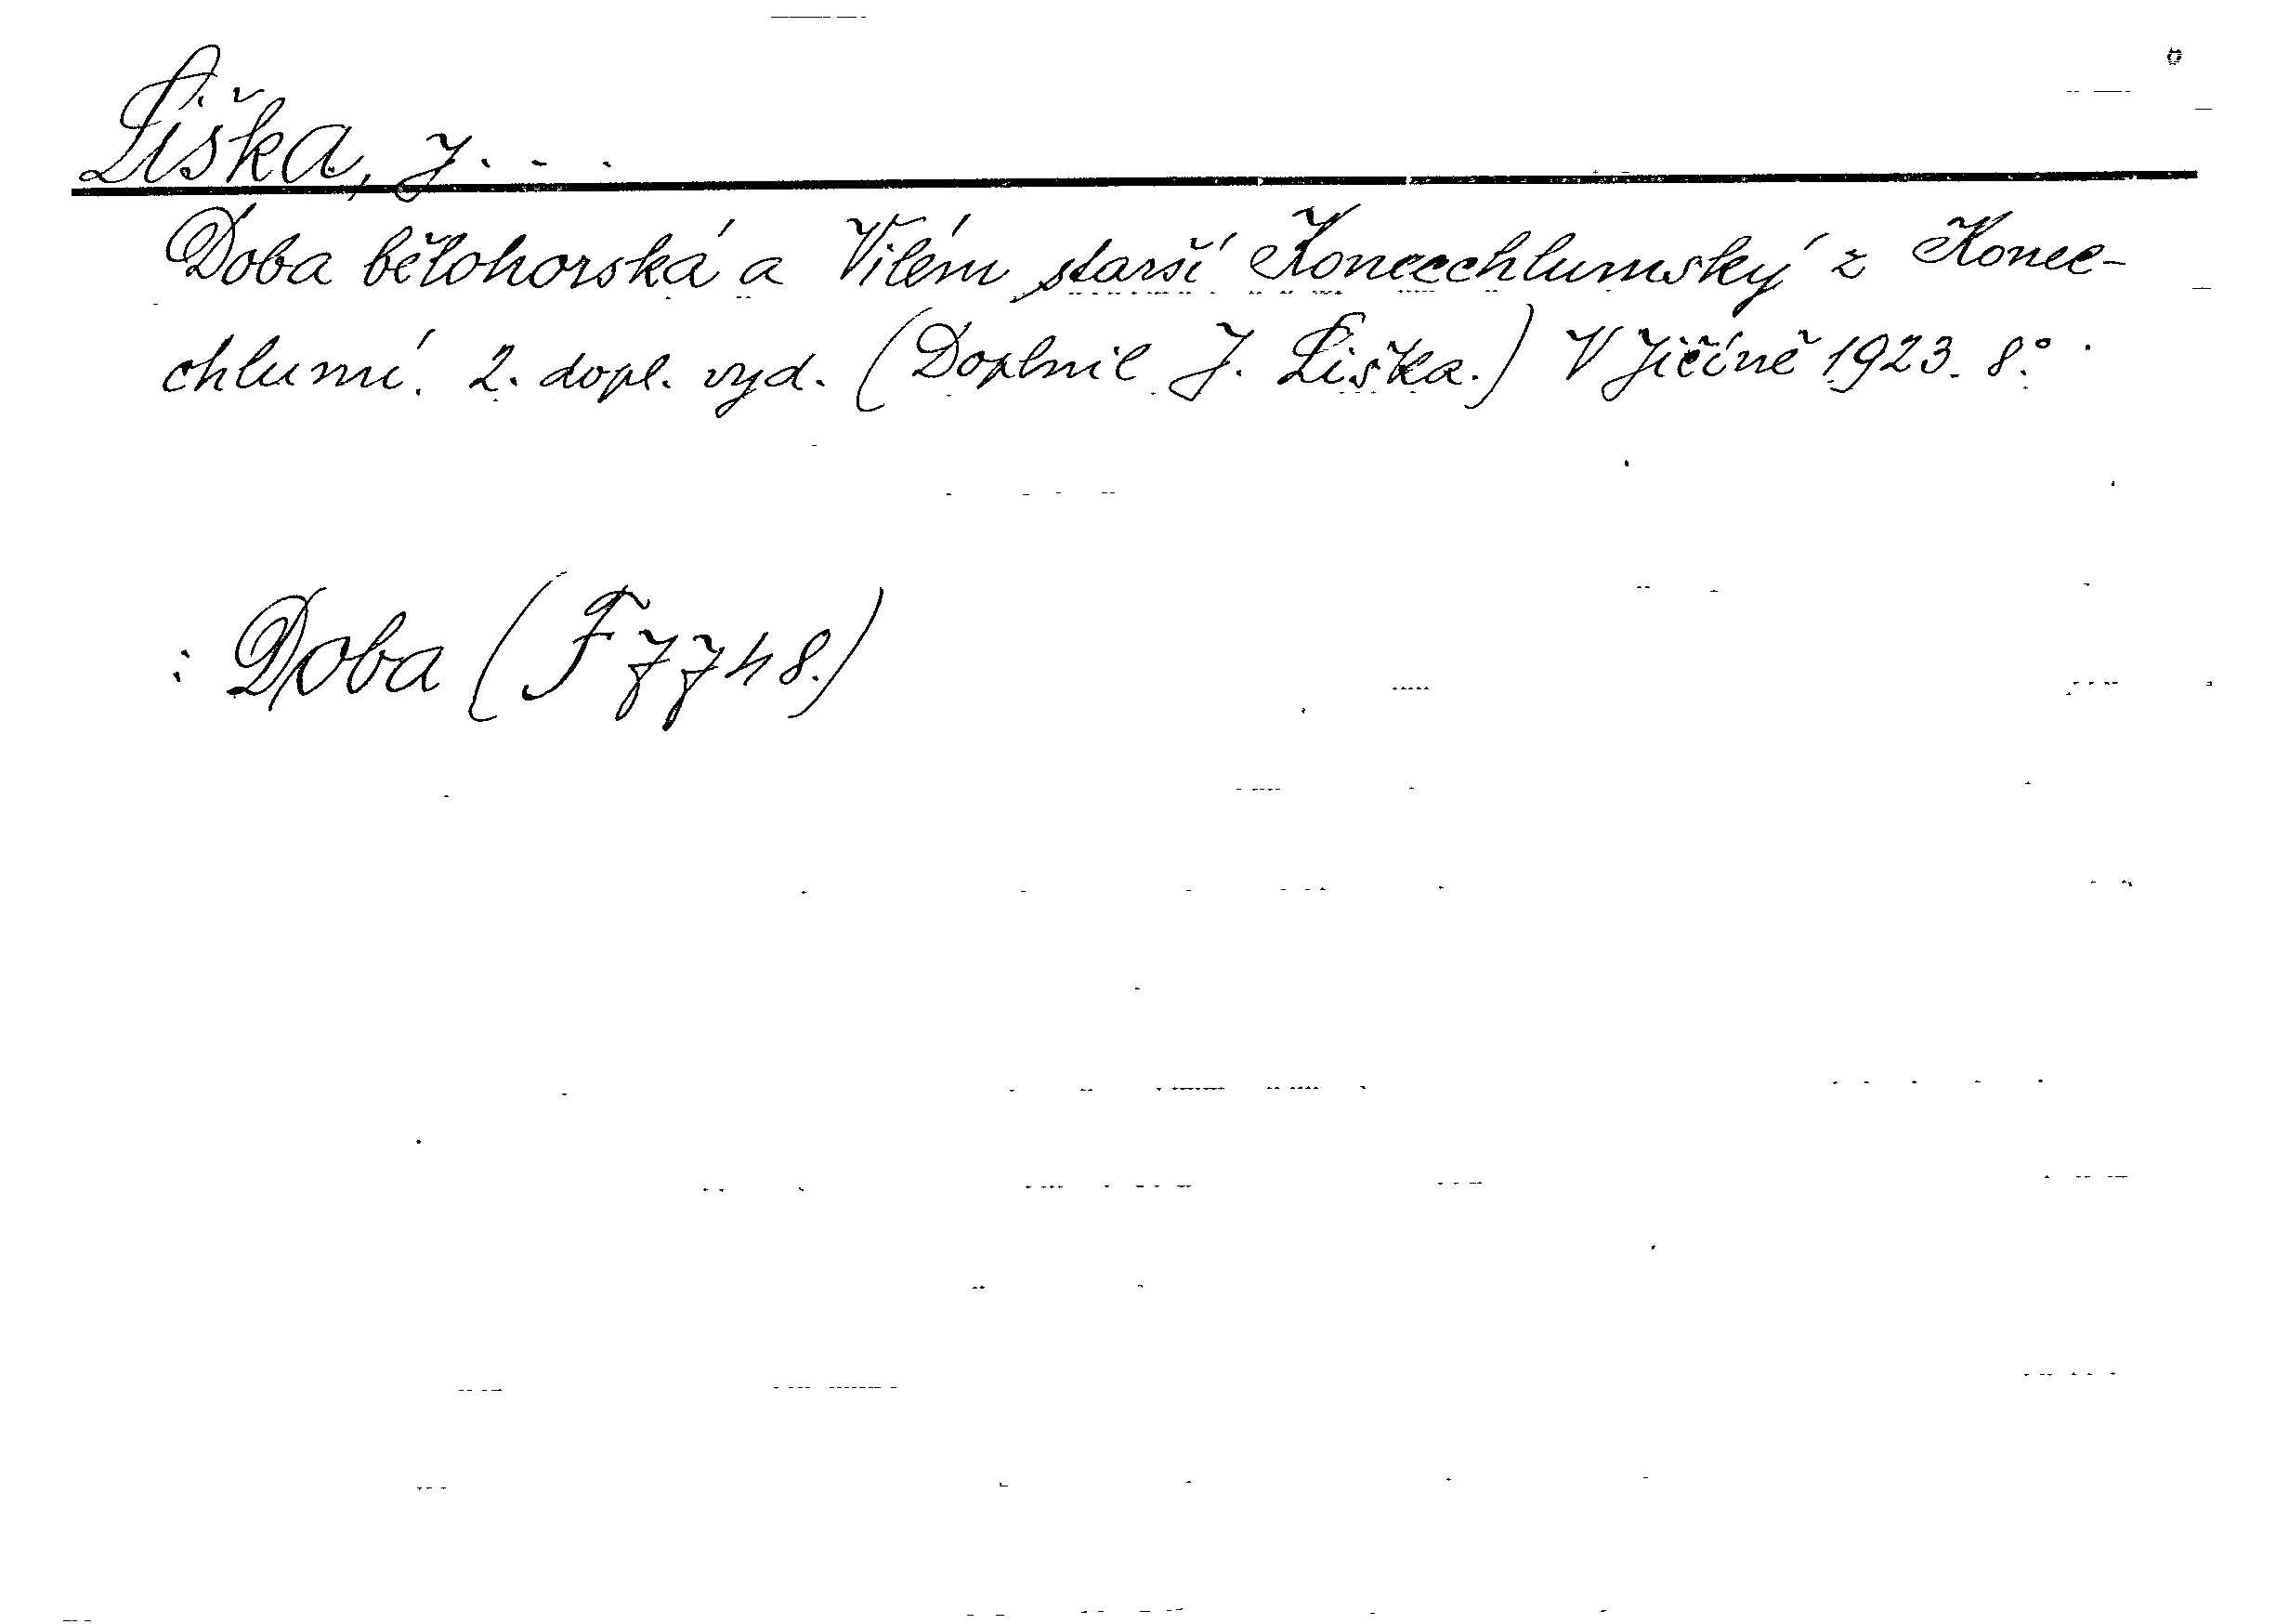 Liška, J. . .
Doba bělohorská a Vilém starší Konecchlumský z Konec-
chlumí. 2. dopl. vyd. (Doplnil J. Liška.) V Jičíně 1923. 8°.
: Doba (F 7748.)